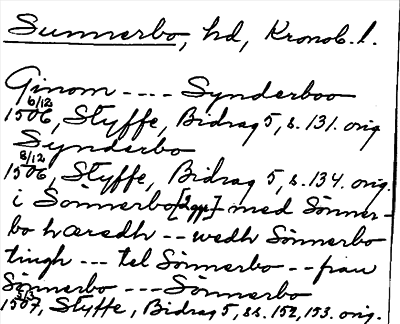 Sunnerbo, hd, Kronob. l.
Ginom ---- Synderboo
6/12
1506, Styffe, Bidrag 5, s. 131. orig
Synderbo
8/12
1506, Styffe, Bidrag 5, s. 134. orig.
i Sönnerbo [2 ggr] med Sönner-
bo hæredh -- wedh Sönnerbo
tingh --- tel Sönnerbo -- fran
Sönnerbo --- Sönnerbo
1507, Styffe, Bidrag 5, ss. 152, 153. orig.